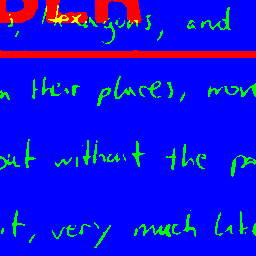 Hexagons, and
their places,
but without the
it, very much